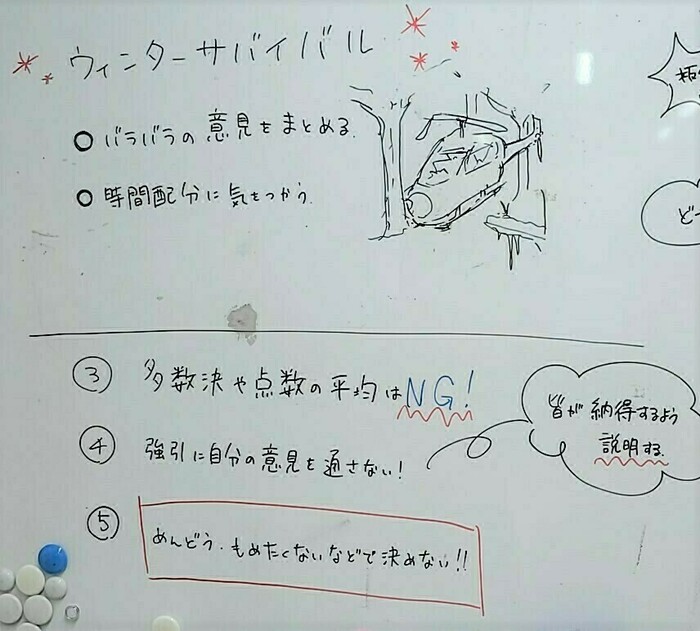 ウィンターサバイバル
○ バラバラの意見をまとめる.
○ 時間配分に気をつかう.
③ 多数決や点数の平均はNG!
④ 強引に自分の意見を通さない!
皆が納得するよう
説明する.
⑤ めんどう・もめたくないなどで決めない!!